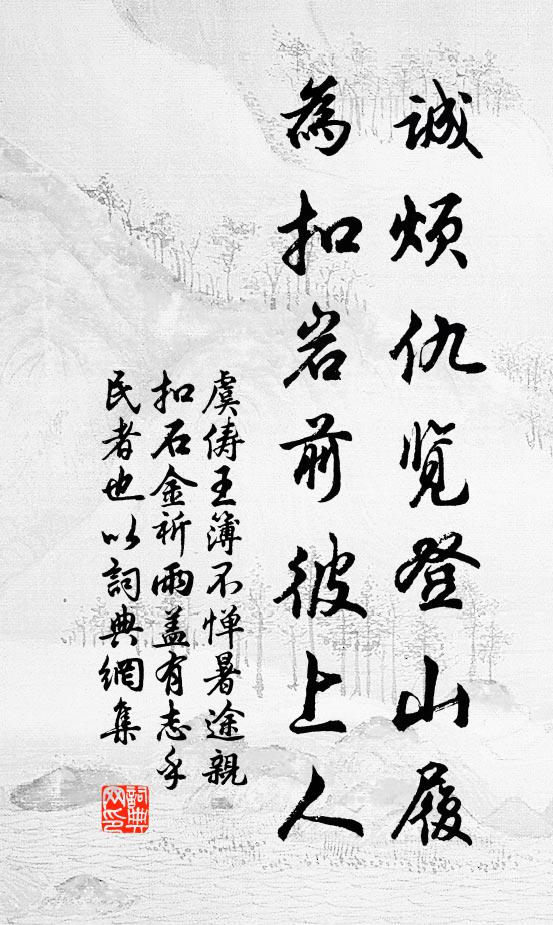 誠煩仇覽登山屐
為扣岩前彼上人
虞俦王簿不惮暑途親
扣石金祈雨盖有志乎
民者也以詞典網集
詞典网印